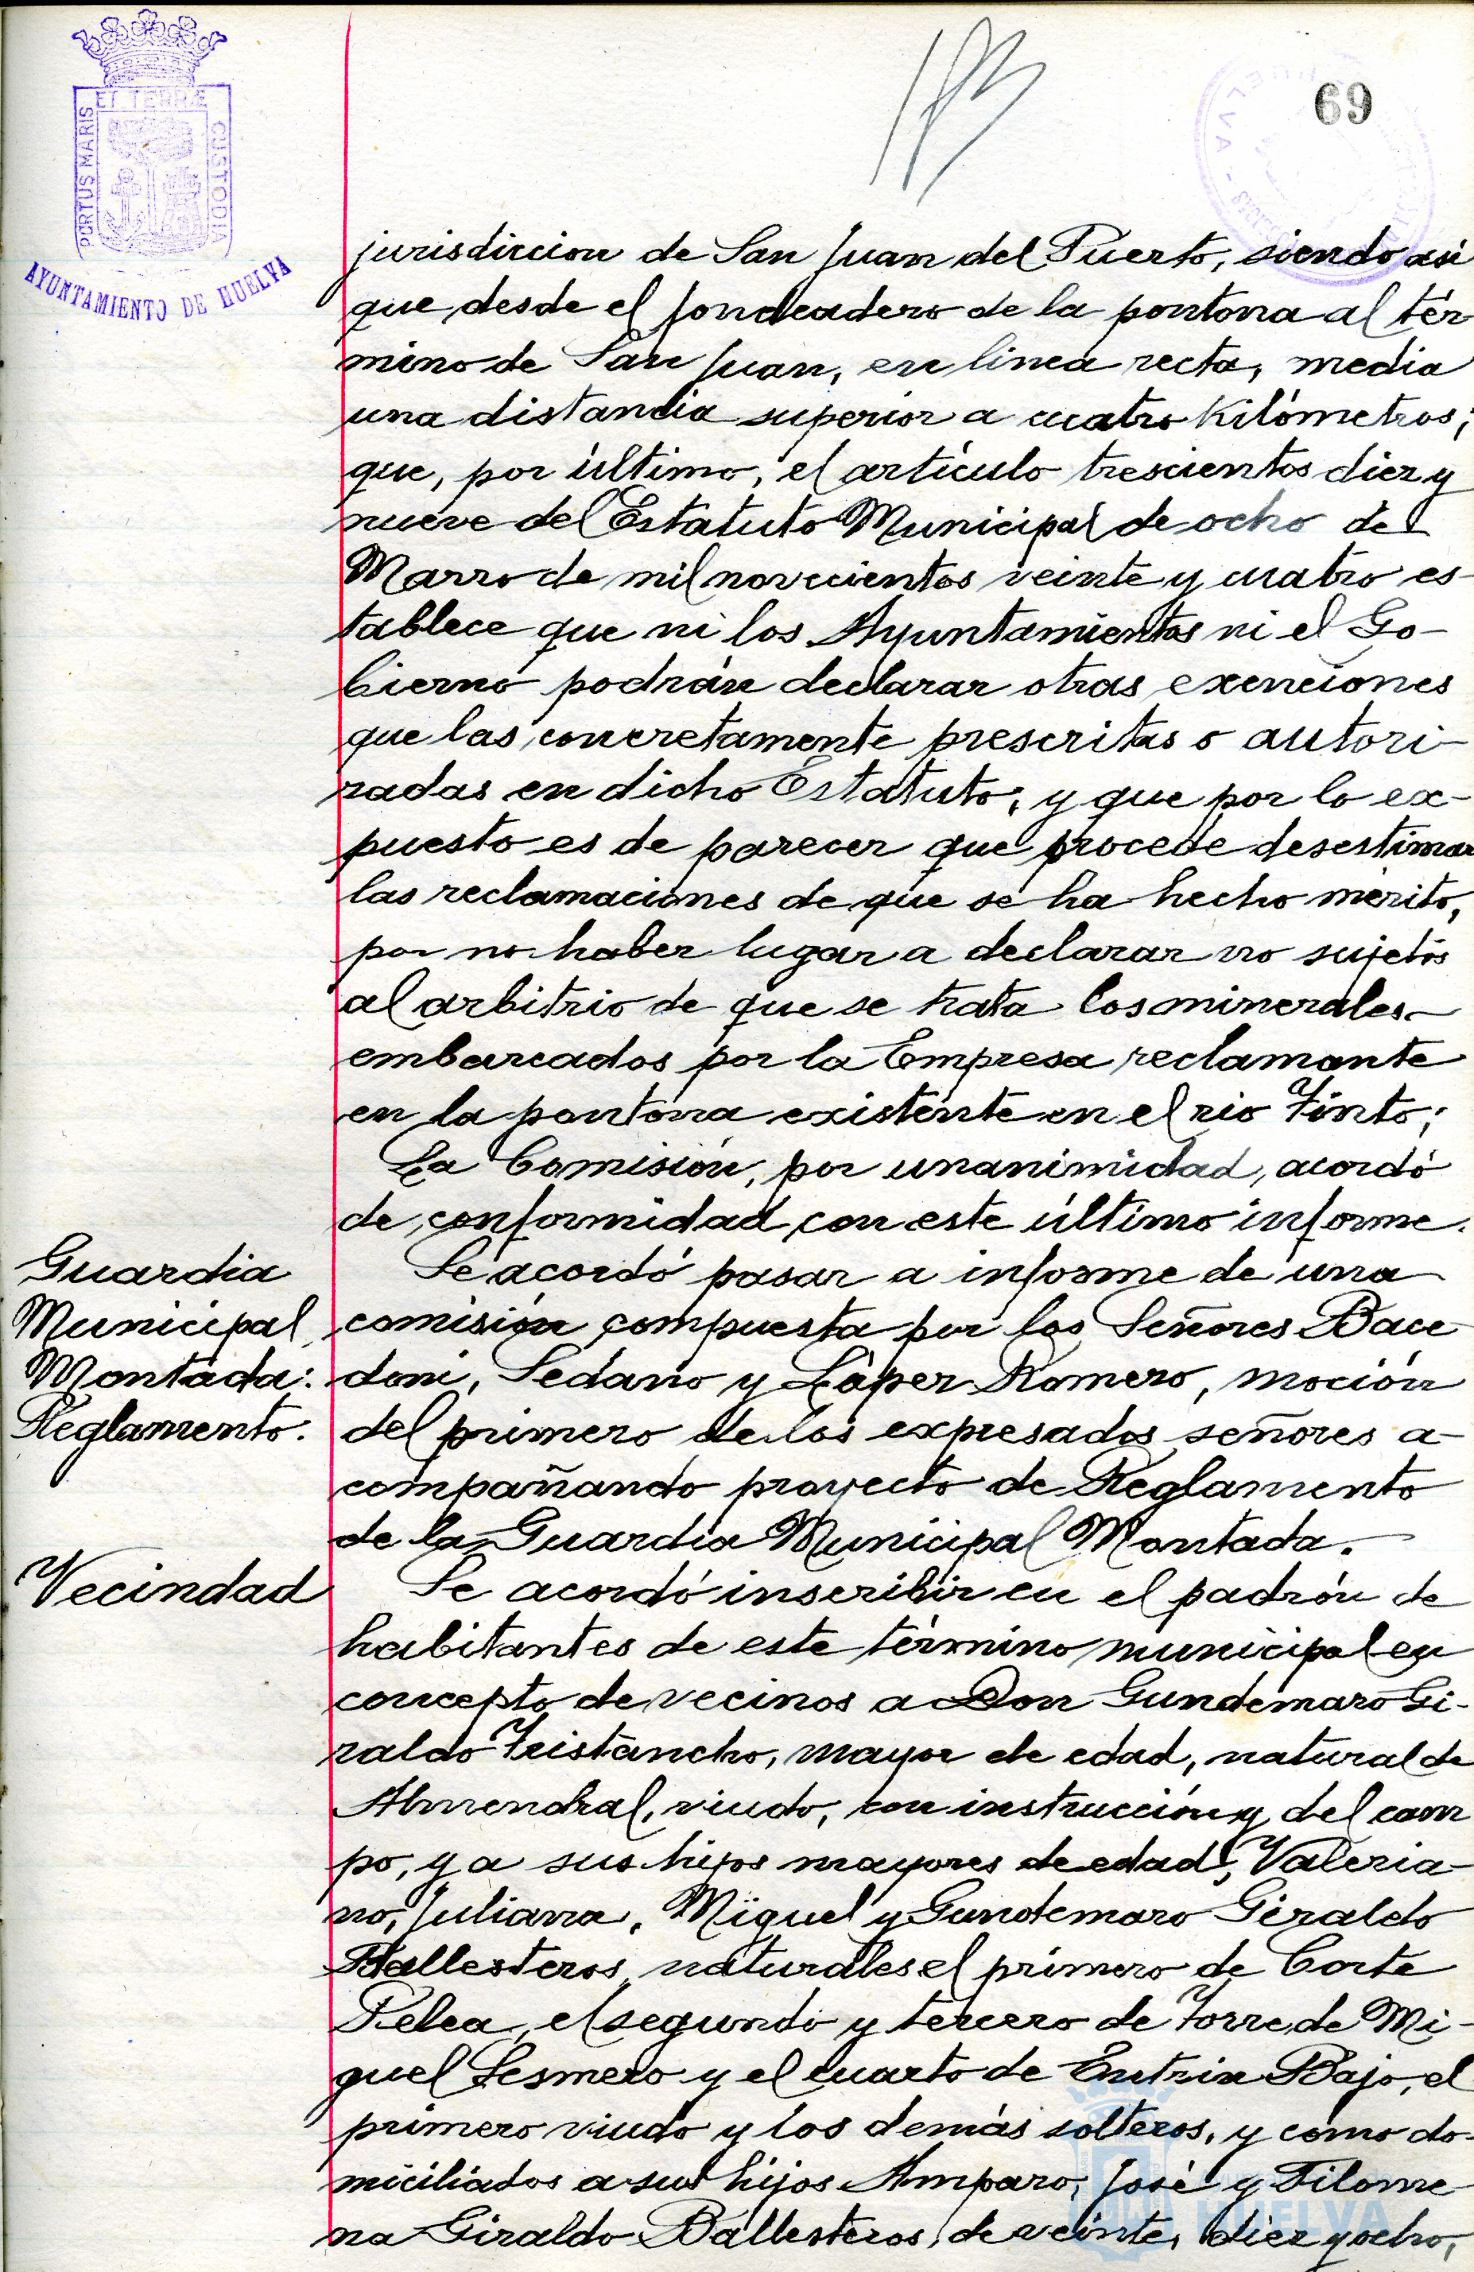 69
ET TERRÆ
PORTUS MARIS
CUSTODIA
AYUNTAMIENTO DE HUELVA
jurisdiccion de San Juan del Puerto, siendo asi
que desde el fondeadero de la pontona al tér
mino de San Juan, en linea recta, media
una distancia superior a cuatro Kilómetros;
que, por último, el artículo trescientos diez y
nueve del Estatuto Municipal de ocho de
Marzo de mil novecientos veinte y cuatro es-
tablece que ni los Ayuntamientos ni el Go-
bierno podrán declarar otras exenciones
que las concretamente prescritas o autori-
zadas en dicho Estatuto; y que por lo ex-
puesto es de parecer que procede desestimar
las reclamaciones de que se ha hecho mérito,
por no haber lugar a declarar no sujetos
al arbitrio de que se trata los minerales
embarcados por la Empresa reclamante
en la pontona existente en el rio Tinto;
La Comisión, por unanimidad, acordó
de conformidad con este último informe.
Guardia
Municipal
Montada:
Reglamento.
Se acordó pasar a informe de una
comisión compuesta por los Señores Bace
doni, Sedano y López Romero, moción
del primero de los expresados señores a-
compañando proyecto de Reglamento
de la Guardia Municipal Montada.
Vecindad
Se acordó inscribir en el padrón de
habitantes de este término municipal en
concepto de vecinos a Don Gundemaro Gi-
raldo Tristancho, mayor de edad, natural de
Almendral, viudo, con instrucción y del cam
po, y a sus hijos mayores de edad, Valeria-
no, Juliana, Miguel y Gundemaro Giraldo
Ballesteros, naturales el primero de Corte
Pelea, el segundo y tercero de Torre de Mi-
guel Sesmero y el cuarto de Entrin Bajo, el
primero viudo y los demás solteros, y como do-
miciliados a sus hijos Amparo, José y Filome
na Giraldo Ballesteros, de veinte, diez y ocho,
HUELVA